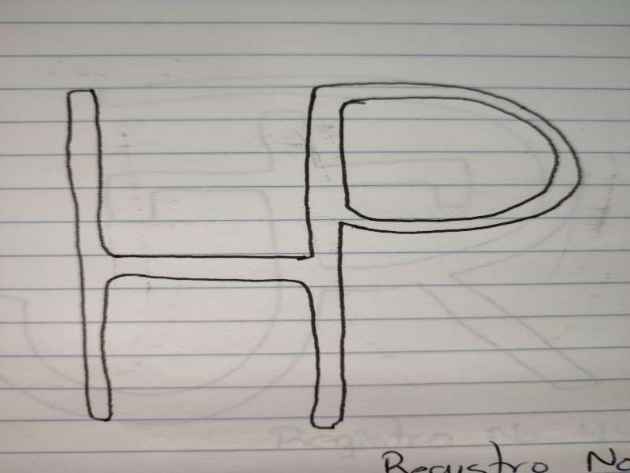 HP
Registro No